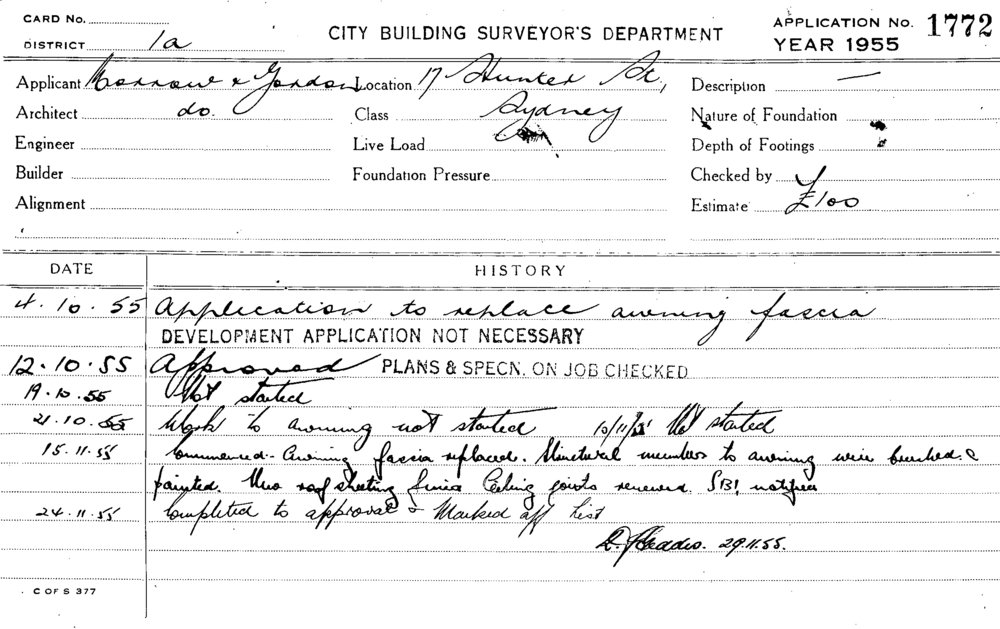 CARD No.
DISTRICT 1a
CITY BUILDING SURVEYOR'S DEPARTMENT
APPLICATION No. 1772
YEAR 1955
Applicant Morrow & Gordon Location 17 Hunter St, Description —
Architect do. Class Sydney Nature of Foundation
Engineer Live Load Depth of Footings
Builder Foundation Pressure Checked by
Alignment Estimate £100
DATE HISTORY
4.10.55 Application to replace awning fascia
DEVELOPMENT APPLICATION NOT NECESSARY
12.10.55 Approved PLANS & SPECN. ON JOB CHECKED
19.10.55 Not started
21.10.55 Work to awning not started 10/11/55 Not started
15.11.55 Commenced - Awning fascia replaced. Structural members to awning were brushed &
painted. roof sheeting Ceiling joists renewed. notified
24.11.55 Completed to approval & Marked off list
29.11.55.
C OF S 377